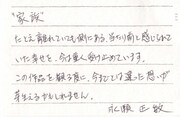 "家族"
たとえ離れていても側にある、当たり前と感じられて
いた幸せを、今は重く受け止めています。
この作品を観る度に、今までとは違った想いが
芽生えるかもしれません。
永瀬 正敏